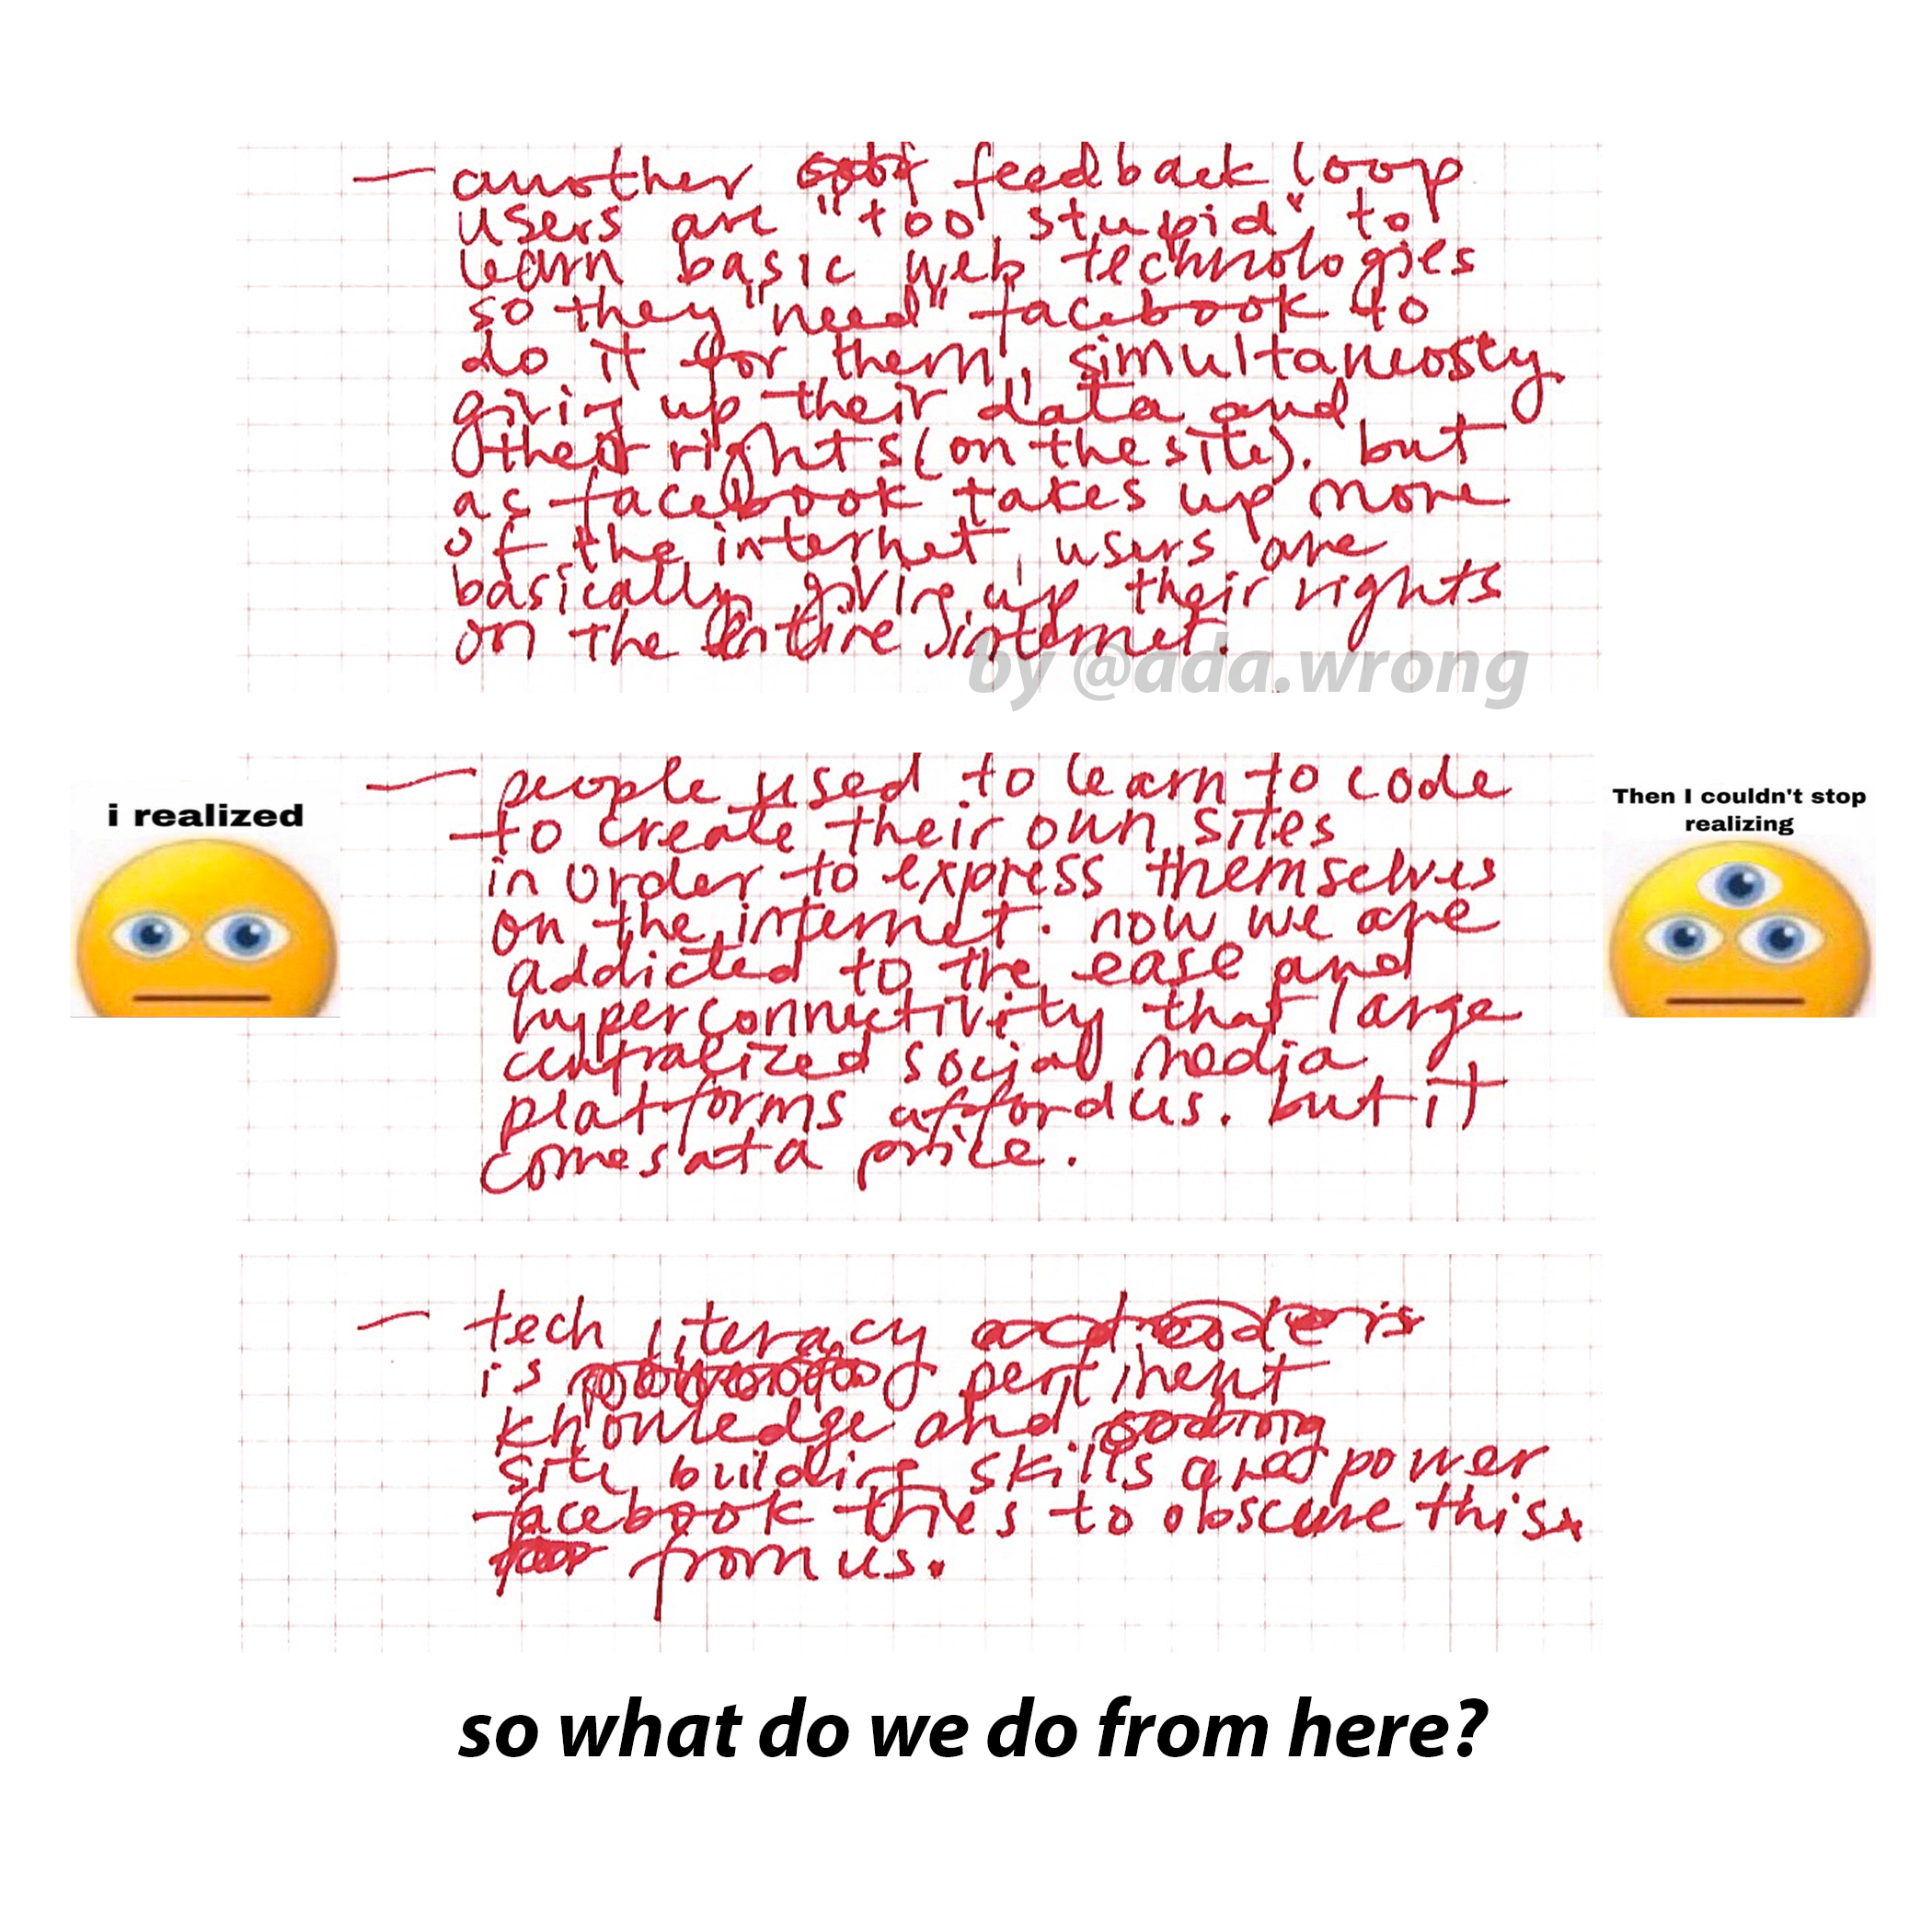 — another feedback loop
users are "too stupid" to
learn basic web technologies
so they "need" facebook to
do it for them, simultaneosly
giving up their data and
their rights (on the site). but
as facebook takes up more
of the internet, users are
basically giving up their rights
on the entire internet.
by @ada.wrong
i realized
— people used to learn to code
to create their own sites
in order to express themselves
on the internet. now we are
addicted to the ease and
hyperconnectivity that large
centralized social media
platforms afford us. but it
comes at a price.
Then I couldn't stop
realizing
— tech literacy
is pertinent
knowledge and coding
site building skills are power
facebook tries to obscure this
from us.
so what do we do from here?